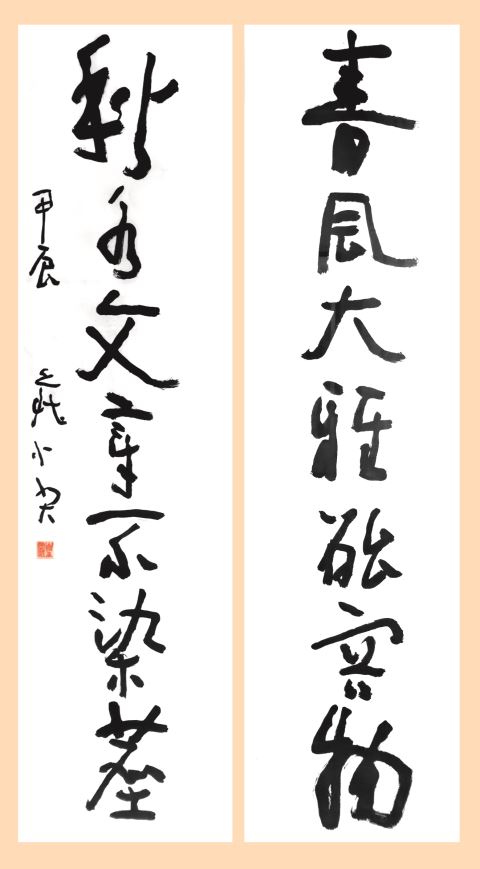 春風大雅能容物
秋水文章不染塵
甲辰